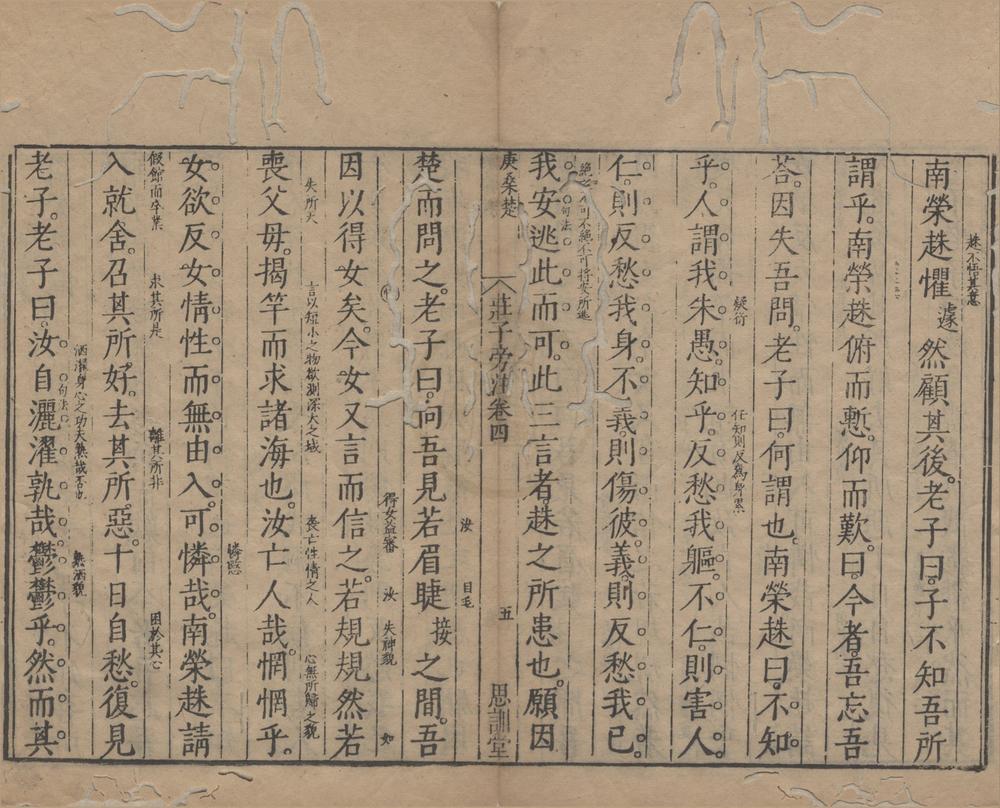 趎不悟其意
南榮趎懼遽然顧其後老子曰子不知吾所
謂乎南榮趎俯而慙仰而歎曰今者吾忘吾
荅因失吾問老子曰何謂也南榮趎曰不知
疑衍
乎人謂我朱愚知乎反愁我軀不仁則害人
任知則反為身累
仁則反愁我身不義則傷彼義則反愁我已
句法
我安逃此而可此三言者趎之所患也願因
庚桑楚
莊子旁注卷四
五
思訓堂
汝 目毛
楚而問之老子曰向吾見若眉睫接之間吾
得女益審 汝 失神貌 如
因以得女矣今女又言而信之若規規然若
失所天 言以短小之物欲測深大之域 喪亡性情之人 心無所歸之貌
喪父母揭竿而求諸海也汝亡人哉惘惘乎
憐愍
女欲反女情性而無由入可憐哉南榮趎請
假館而卒業 求其所是 離其所非 困於其心
入就舍召其所好去其所惡十日自愁復見
洒濯身心之功夫熟哉否也 無洒貌
句法
老子老子曰汝自灑濯孰哉鬱鬱乎然而其